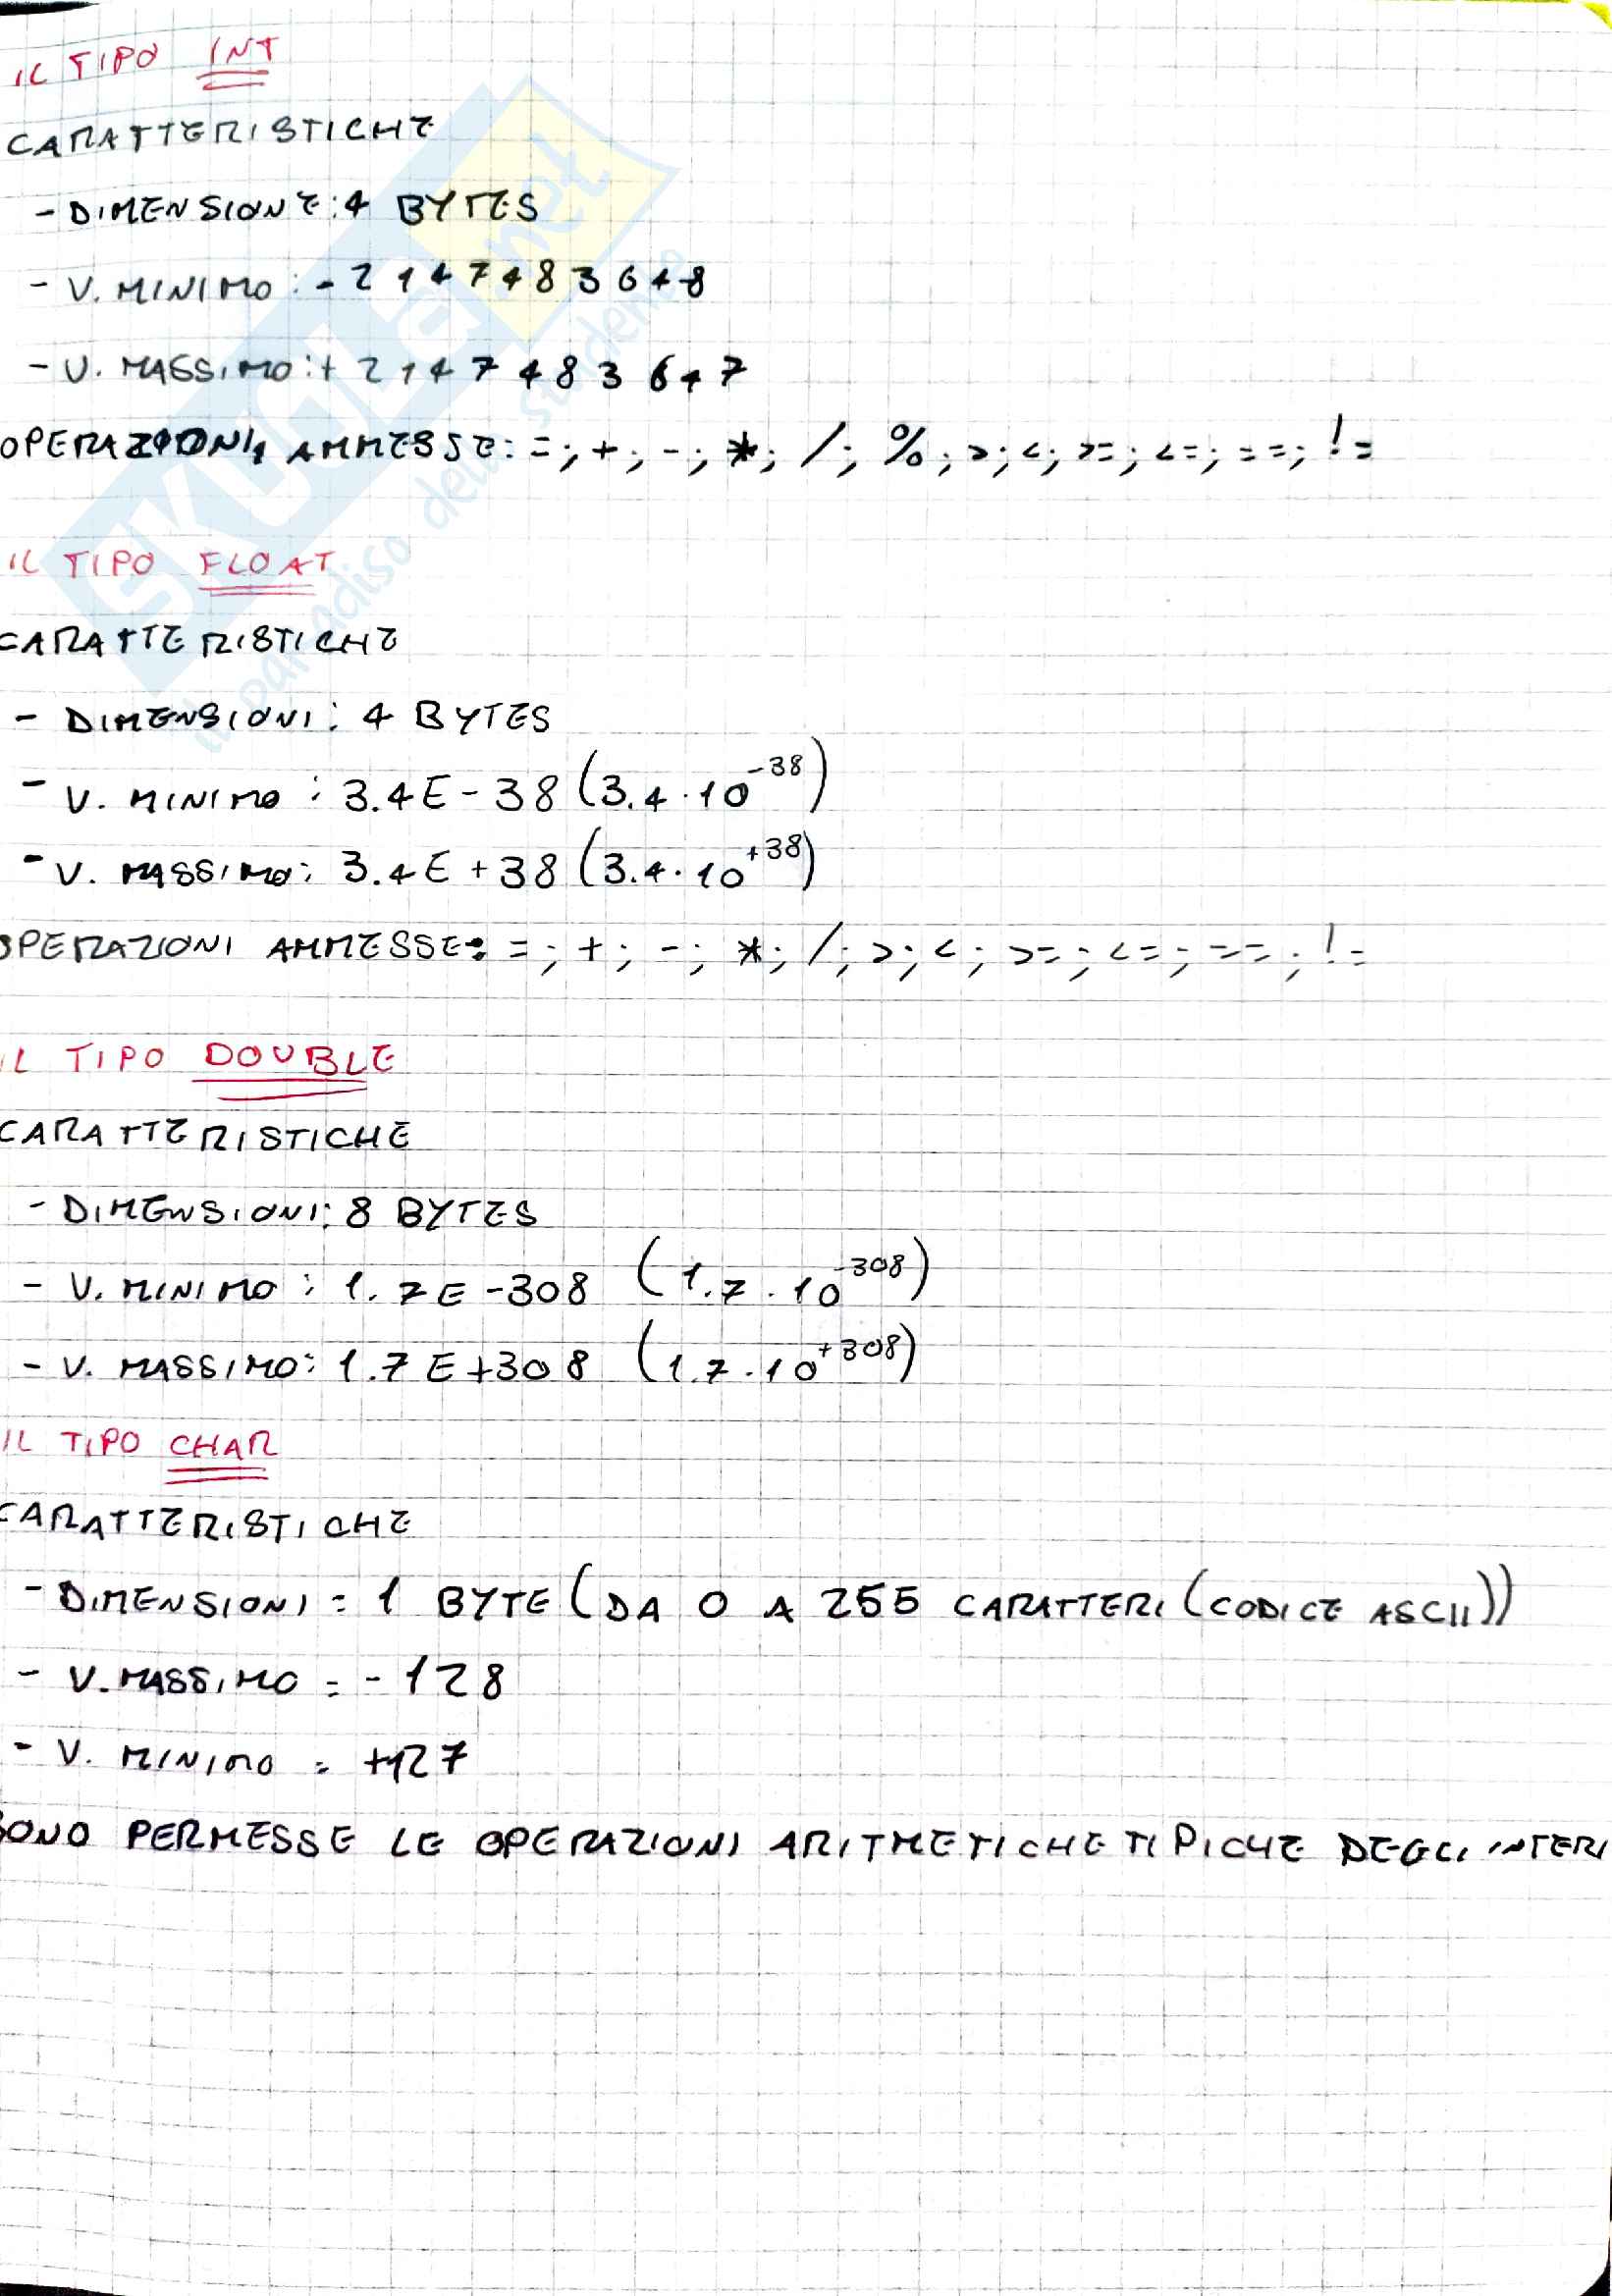 IL TIPO INT
CARATTERISTICHE
- DIMENSIONE: 4 BYTES
- V. MINIMO: -2147483648
- V. MASSIMO: +2147483647
OPERAZIONI AMMESSE: =; +; -; *; /; %; >; <; >=; <=; ==; !=
IL TIPO FLOAT
CARATTERISTICHE
- DIMENSIONI: 4 BYTES
- V. MINIMO: 3.4E-38 (3.4·10^-38)
- V. MASSIMO: 3.4E+38 (3.4·10^+38)
OPERAZIONI AMMESSE: =; +; -; *; /; >; <; >=; <=; ==; !=
IL TIPO DOUBLE
CARATTERISTICHE
- DIMENSIONI: 8 BYTES
- V. MINIMO: 1.7E-308 (1.7·10^-308)
- V. MASSIMO: 1.7E+308 (1.7·10^+308)
IL TIPO CHAR
CARATTERISTICHE
- DIMENSIONI = 1 BYTE (DA 0 A 255 CARATTERI (CODICE ASCII))
- V. MASSIMO = -128
- V. MINIMO = +127
SONO PERMESSE LE OPERAZIONI ARITMETICHE TIPICHE DEGLI INTERI
SKUOLA.net
il paradiso dello studente